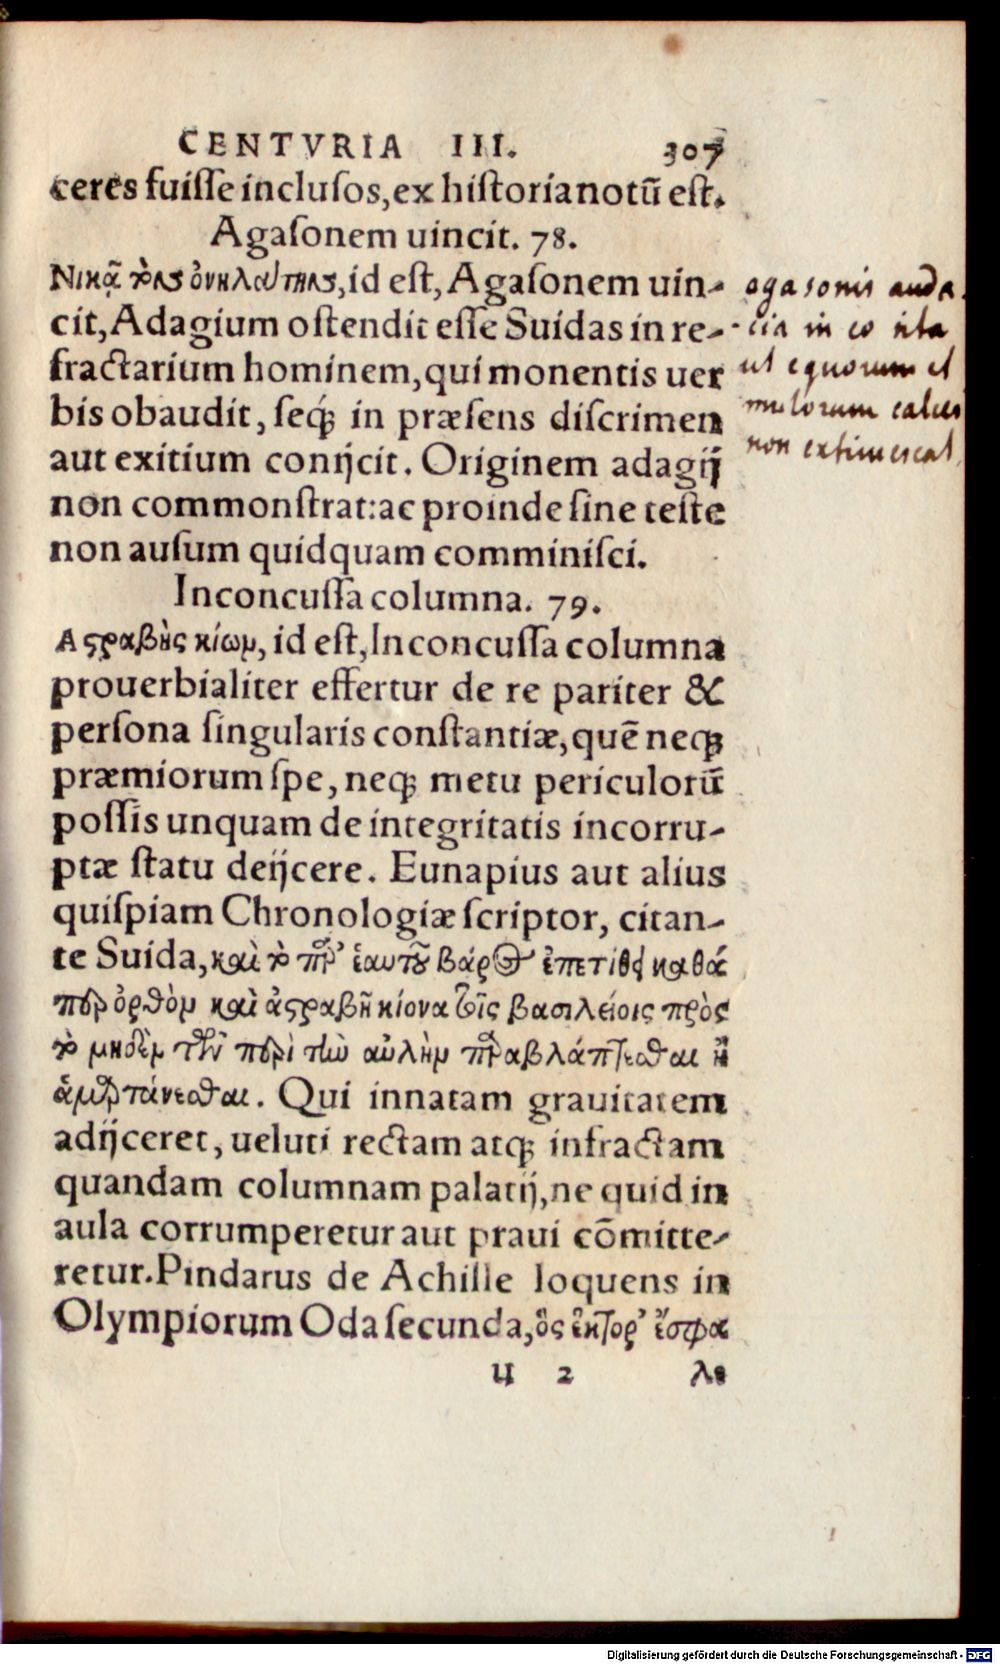 CENTVRIA III. 307
ceres fuisse inclusos, ex historia notũ est.
Agasonem uincit. 78.
Νικᾷ τοὺς ὀνηλάτας, id est, Agasonem uin-
cit, Adagium ostendit esse Suidas in re-
fractarium hominem, qui monentis uer
bis obaudit, seq́; in præsens discrimen
aut exitium conijcit. Originem adagij
non commonstrat: ac proinde sine teste
non ausum quidquam comminisci.
agasonis auda
cia in eo sita
ut equorum et
mulorum calces
non extimescat.
Inconcussa columna. 79.
Αςραβὴς κίων, id est, Inconcussa columna
prouerbialiter effertur de re pariter &
persona singularis constantiæ, quẽ neq;
præmiorum spe, neq; metu periculorũ
possis unquam de integritatis incorru-
ptæ statu deijcere. Eunapius aut alius
quispiam Chronologiæ scriptor, citan-
te Suida, καὶ τὸ παρ᾽ ἑαυτοῦ βάρος ἐπετίθει καθά
περ ὀρθὸν καὶ ἀςραβῆ κίονα τοῖς βασιλείοις πρὸς
τὸ μηδὲν τῶν περὶ τὴν αὐλὴν παραβλάπτεσθαι ἢ
ἁμαρτάνεσθαι. Qui innatam grauitatem
adijceret, ueluti rectam atq; infractam
quandam columnam palatij, ne quid in
aula corrumperetur aut praui cõmitte-
retur. Pindarus de Achille loquens in
Olympiorum Oda secunda, ὃς ἕκτορ᾽ ἔσφα
u 2 λε
Digitalisierung gefördert durch die Deutsche Forschungsgemeinschaft - DFG